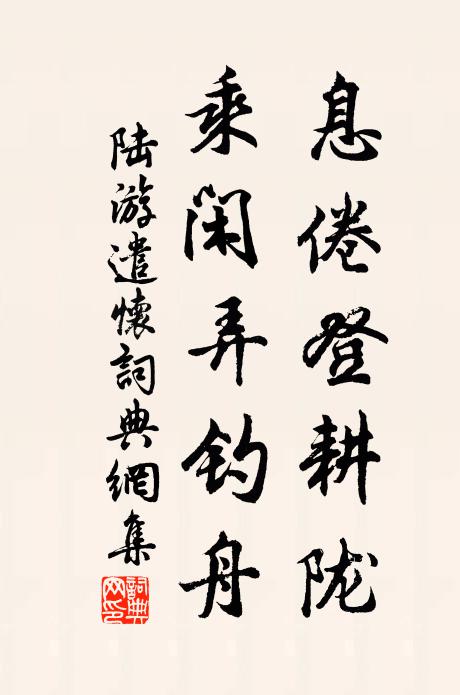 息倦登耕陇
乘闲弄钓舟
陆游遣懷詞典網集
詞典网印